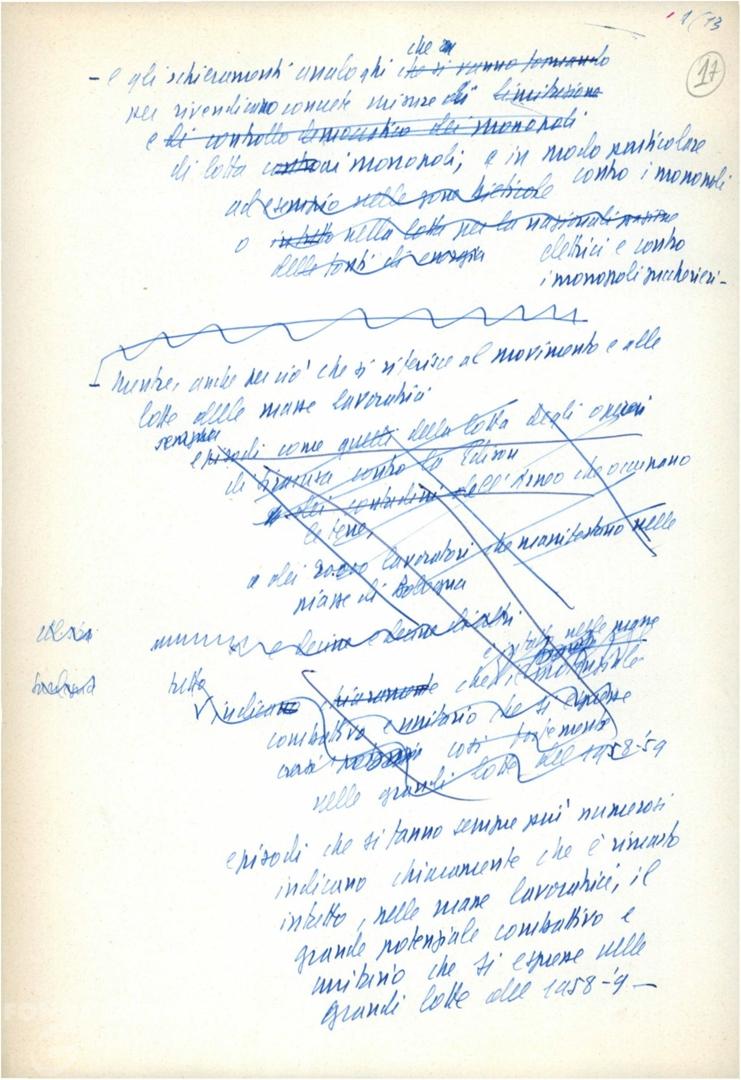 1/13
17
che in
– e gli schieramenti analoghi che si vanno formando
per rivendicare concrete misure di limitazione
e di controllo democratico dei monopoli
di lotta contro i monopoli; e in modo particolare
contro i monopoli
ad esempio nelle zone bieticole
o intetto nella lotta per la nazionalizzazione
delle fonti di energia
elettrici e contro
i monopoli zuccherieri –
– Mentre, anche per ciò che si riferisce al movimento e alle
lotte delle masse lavoratrici
sempre
episodi come quelli della lotta degli operai
di Siracusa contro la Edison
dei contadini dell'Arneo che occupano
le terre,
o dei lavoratori che manifestano nelle
piazze di Bologna
e decine e decine di altri
indicano chiaramente che
combattivo e unitario che si espresse
così fortemente
nelle grandi lotte del 1958-59
episodi che si fanno sempre più numerosi
indicano chiaramente che è rimasto
intatto, nelle masse lavoratrici, il
grande potenziale combattivo e
unitario che si espresse nelle
grandi lotte del 1958-9 –